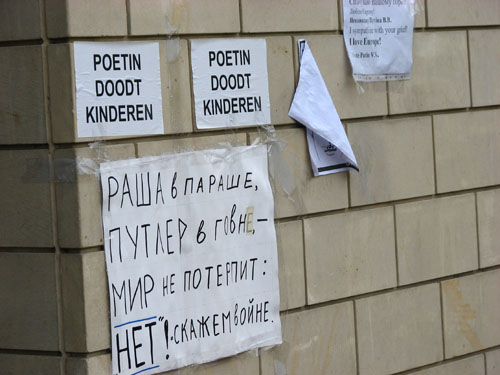 POETIN
DOODT
KINDEREN
POETIN
DOODT
KINDEREN
Путина В.В.
with your grief!
I love Europe!
Putin V.V.
РАША в ПАРАШЕ,
ПУТЛЕР в говне,–
МИР не ПОТЕРПИТ:
НЕТ"!-скажем войне.